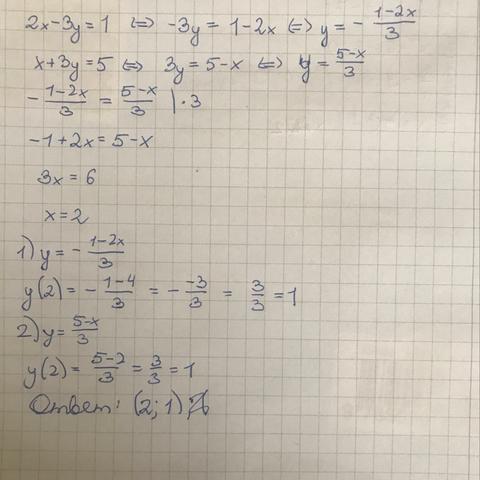 2x-3y=1 ⟺ -3y= 1-2x ⟺ y= - (1-2x)/3
x+3y=5 ⟺ 3y=5-x ⟺ y= (5-x)/3
- (1-2x)/3 = (5-x)/3 | ·3
-1+2x=5-x
3x=6
x=2
1) y= - (1-2x)/3
y(2)= - (1-4)/3 = - (-3)/3 = 3/3 =1
2) y= (5-x)/3
y(2) = (5-2)/3 = 3/3 =1
Ответ: (2; 1)